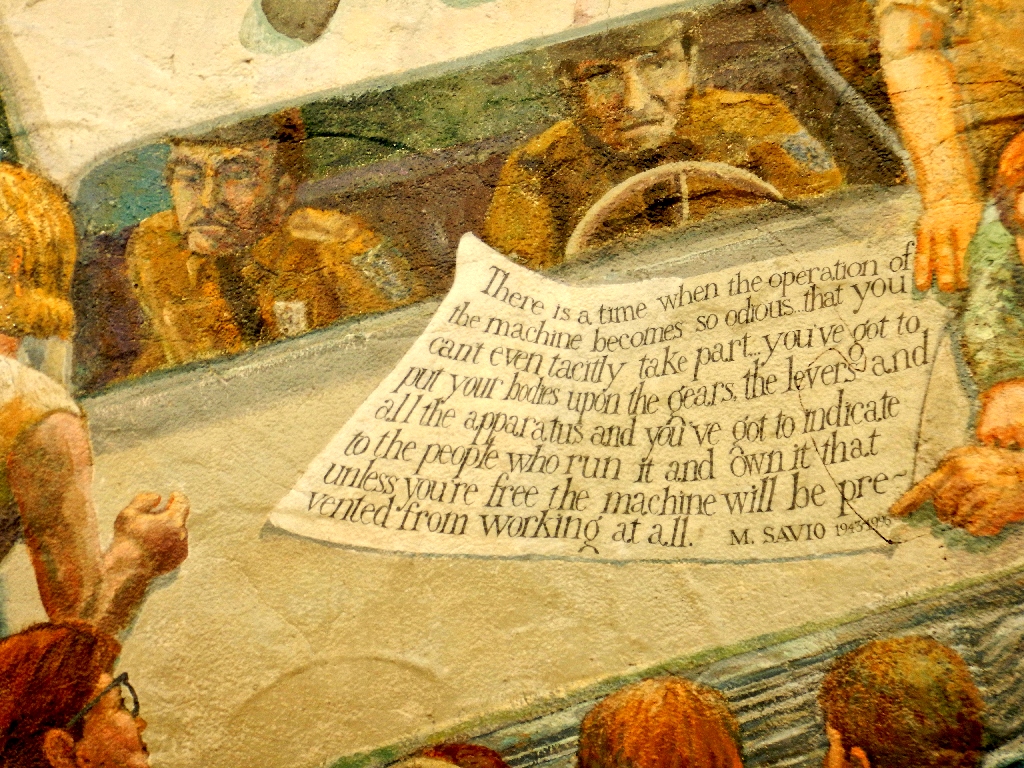 There is a time when the operation of
the machine becomes so odious that you
cant even tacitly take part... you've got to
put your bodies upon the gears, the levers and
all the apparatus and you've got to indicate
to the people who run it and own it that
unless you're free the machine will be pre-
vented from working at all. M. SAVIO